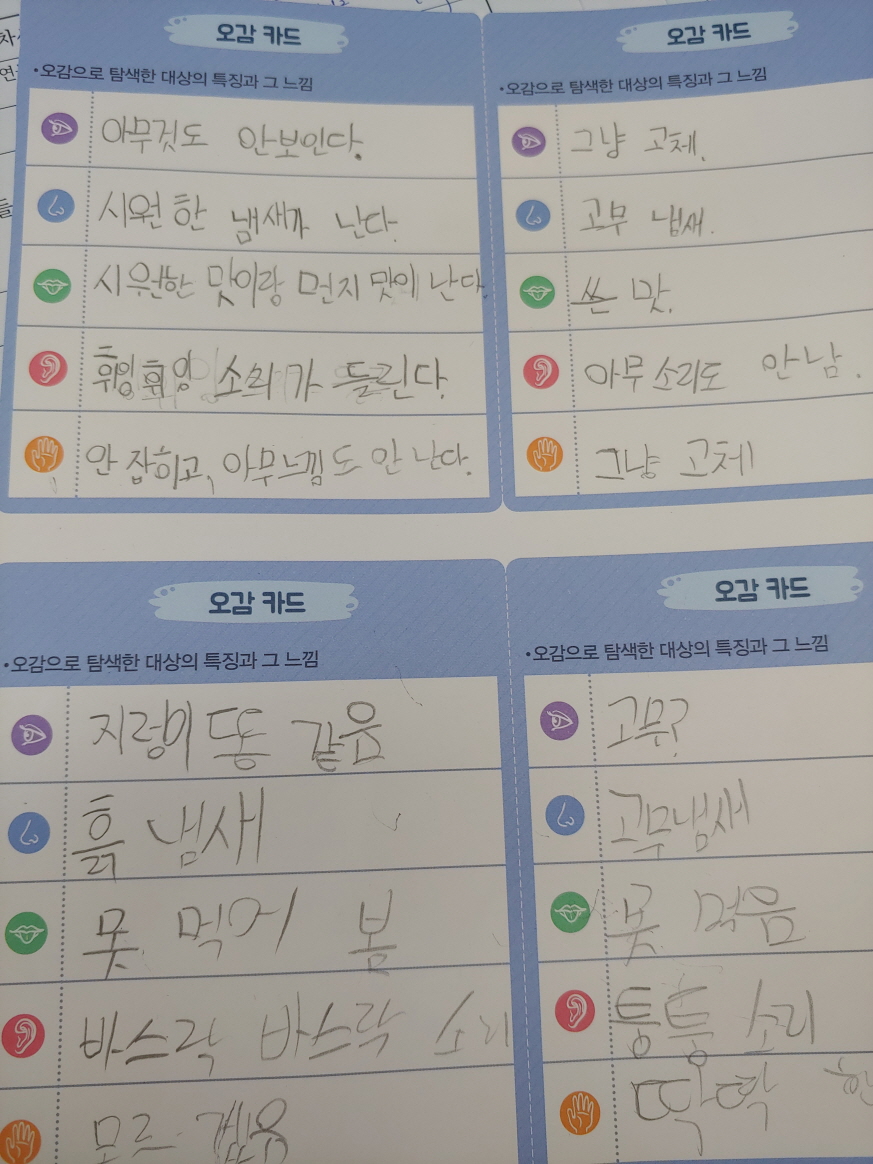 오감 카드
•오감으로 탐색한 대상의 특징과 그 느낌
아무것도 안보인다.
시원한 냄새가 난다.
시원한 맛이랑 먼지 맛이 난다.
휘잉 휘잉 소리가 들린다.
안 잡히고, 아무느낌도 안 난다.
오감 카드
•오감으로 탐색한 대상의 특징과 그 느낌
그냥 고체.
고무 냄새.
쓴 맛.
아무 소리도 안남.
그냥 고체
오감 카드
•오감으로 탐색한 대상의 특징과 그 느낌
지렁이 똥 같음
흙 냄새
못 먹어 봄
바스락 바스락 소리
모르겠음
오감 카드
•오감으로 탐색한 대상의 특징과 그 느낌
고무?
고무냄새
못 먹음
통통 소리
딱딱 한